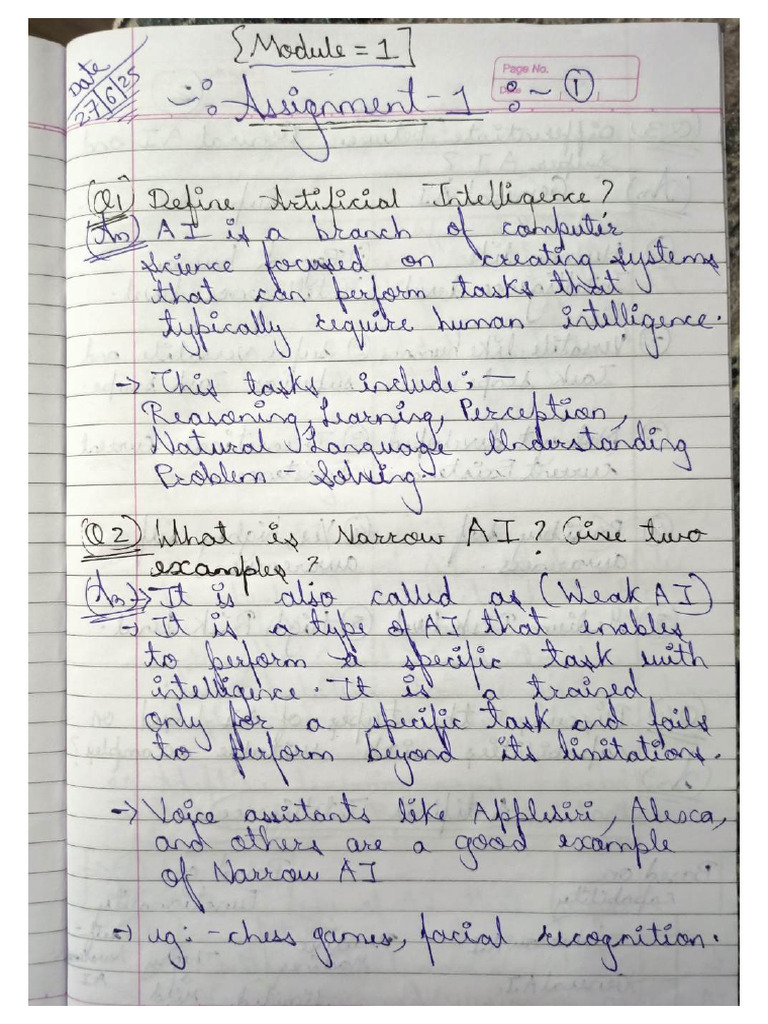 [Module = 1]
Date
27/6/25
Page No.
Date
1
Assignment - 1
Q1) Define Artificial Intelligence?
Ans) AI is a branch of computer
science focused on creating systems
that can perform tasks that
typically require human intelligence.
→ This tasks include:-
Reasoning, Learning, Perception,
Natural Language Understanding
Problem - Solving.
Q2) What is Narrow AI? Give two
examples?
Ans → It is also called as (Weak AI)
→ It is a type of AI that enables
to perform a specific task with
intelligence. It is a trained
only for a specific task and fails
to perform beyond its limitations.
→ Voice assistants like Applesiri, Alexca,
and others are a good example
of Narrow AI
→ eg:- chess games, facial recognition.